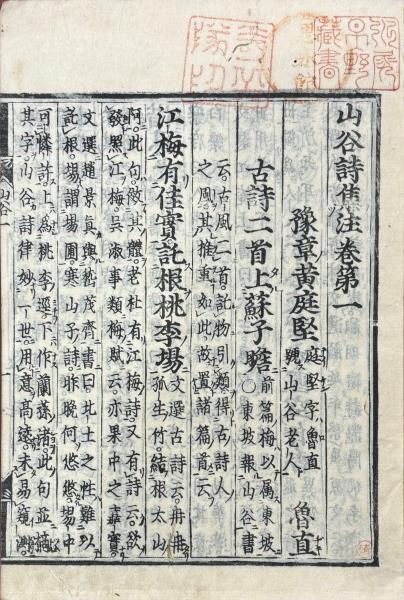 山谷詩集注卷第一
豫章黃庭堅 魯直
庭堅字魯直
號山谷老人
古詩二首上蘇子瞻
前篇梅以屬東坡
〇東坡報山谷書
云古風二首託物引類得古詩人
之風其推重如此故置諸篇首云
江梅有佳實託根桃李場
文選古詩云冉冉
孤生竹結根太山
阿此句倣其體老杜有江梅詩又有詩云欲
發照江梅吳淑事類梅賦云亦果中之嘉實
文選趙景真與嵇茂齊書曰北土之性難以
託根場謂場圃寒山子詩昨晚何悠悠場中
可憐許上為桃李逕下作蘭蓀渚此句並摘
其字山谷詩律妙一世用意高遠未易窺測
山谷一
藏書